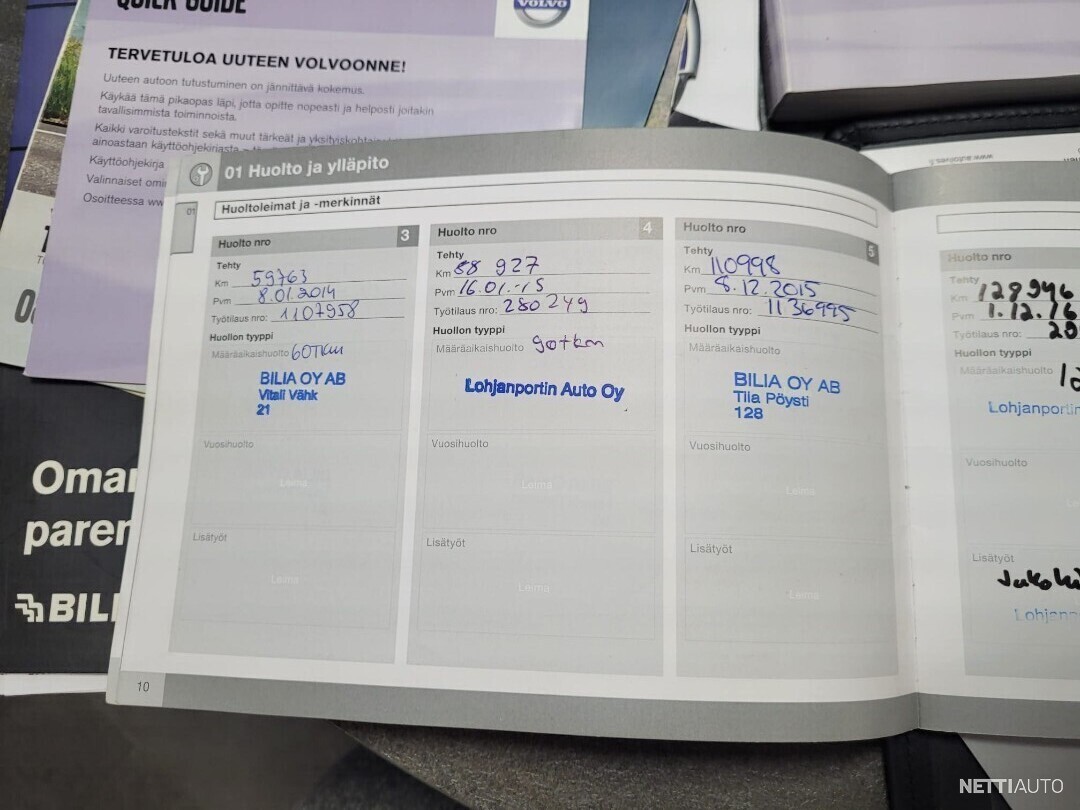 QUICK GUIDE
VOLVO
TERVETULOA UUTEEN VOLVOONNE!
Uuteen autoon tutustuminen on jännittävä kokemus.
Käykää tämä pikaopas läpi, jotta opitte nopeasti ja helposti joitakin
tavallisimmista toiminnoista.
Kaikki varoitustekstit sekä muut tärkeät ja
ainoastaan käyttöohjekirjasta
Käyttöohjekirja
Valinnaiset
Osoitteessa
01 Huolto ja ylläpito
01
Huoltoleimat ja -merkinnät
Huolto nro 3
Tehty
Km 59763
Pvm 8.01.2014
Työtilaus nro: 1107958
Huollon tyyppi
Määräaikaishuolto 60TKM
BILIA OY AB
Vitali Vähk
21
Vuosihuolto
Leima
Lisätyöt
Leima
Huolto nro 4
Tehty
Km 88 927
Pvm 16.01.-15
Työtilaus nro: 280249
Huollon tyyppi
Määräaikaishuolto 90tkm
Lohjanportin Auto Oy
Vuosihuolto
Leima
Lisätyöt
Leima
Huolto nro 5
Tehty
Km 110998
Pvm 8.12.2015
Työtilaus nro: 1136995
Huollon tyyppi
Määräaikaishuolto
BILIA OY AB
Tiia Pöysti
128
Vuosihuolto
Leima
Lisätyöt
Leima
Huolto nro
Tehty
Km 128946
Pvm 1.12.16
Työtilaus nro: 20
Huollon tyyppi
Määräaikaishuolto
Lohjanportin
Vuosihuolto
Lisätyöt
Lohjan
10
Oma
parem
BILI
NETTIAUTO